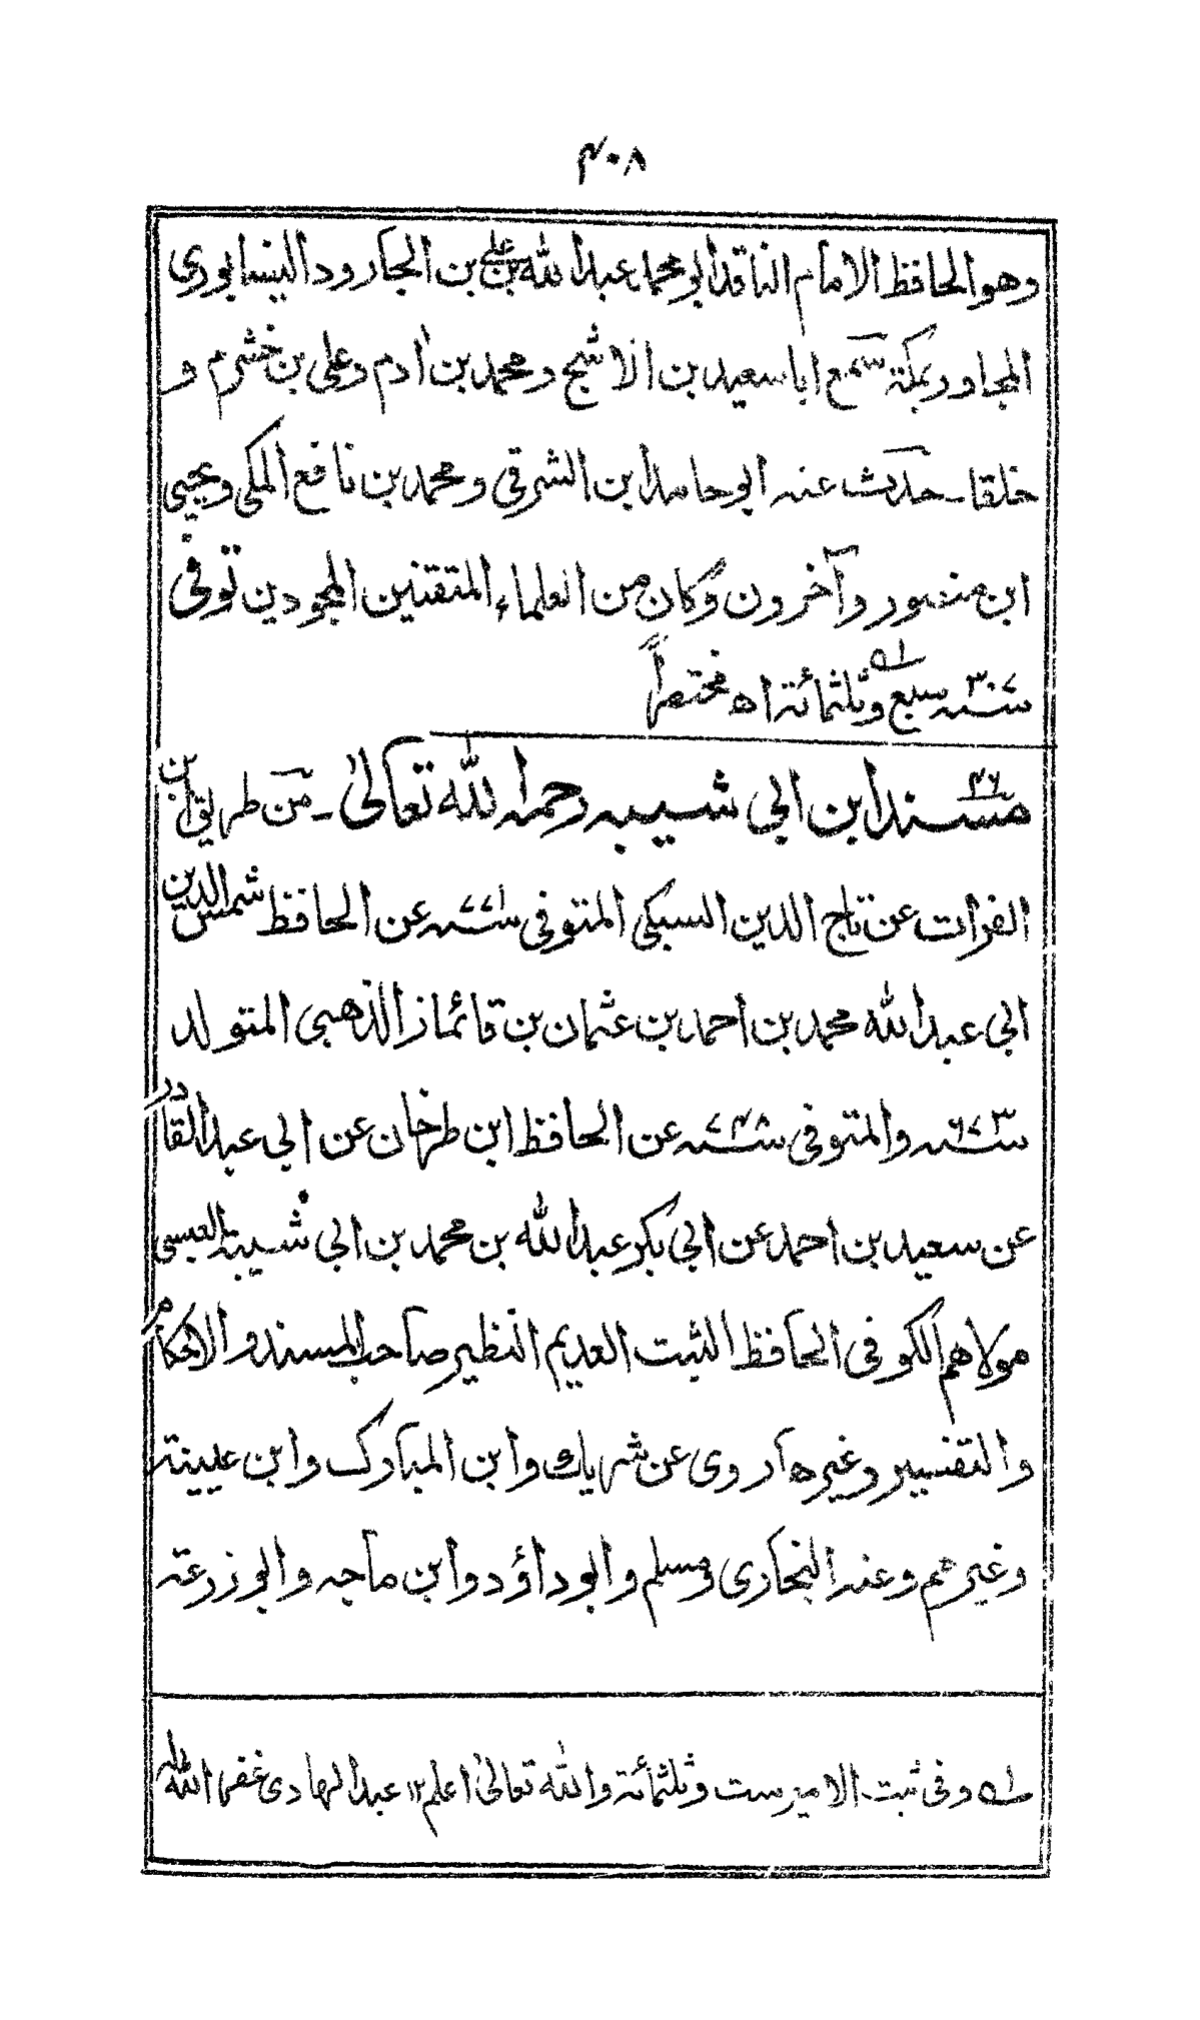 ۴۰۸
وهو الحافظ الامام الناقد ابو محمد عبد الله بن علي بن الجارود النيسابوري
المجاور بمكة سمع ابا سعيد بن الاشج ومحمد بن ادم وعلي بن خشرم و
خلقا۔ حدث عنه ابو حامد ابن الشرقي ومحمد بن نافع المكي ويحيى
ابن منصور وآخرون وكان من العلماء المتقنين المجودين توفى
سنه ۳۰۷ سبع وثلثمائة اه مختصراً ؎۱
۴۶ مسند ابن ابي شيبه رحمه الله تعالىٰ۔ من طريق ابن
الفرات عن تاج الدين السبكي المتوفى سنه ۷۷۱ عن الحافظ شمس الدين
ابي عبد الله محمد بن احمد بن عثمان بن قائماز الذهبي المتولد
سنه ۶۷۳ والمتوفى سنه ۷۴۸ عن الحافظ ابن طرخان عن ابي عبد القادر
عن سعيد بن احمد عن ابي بكر عبد الله بن محمد بن ابي شيبة العبسي
مولاهم الكوفي الحافظ الثبت العديم النظير صاحب المسند والاحكام
والتفسير وغيرها روى عن شريك وابن المبارك وابن عيينة
وغيرهم وعنه البخاري ومسلم وابو داؤد وابن ماجه وابو زرعة
؎۱ وفي ثبت الامير ست وثلثمائة والله تعالىٰ اعلم ۱۲ عبد الهادي غفر الله له